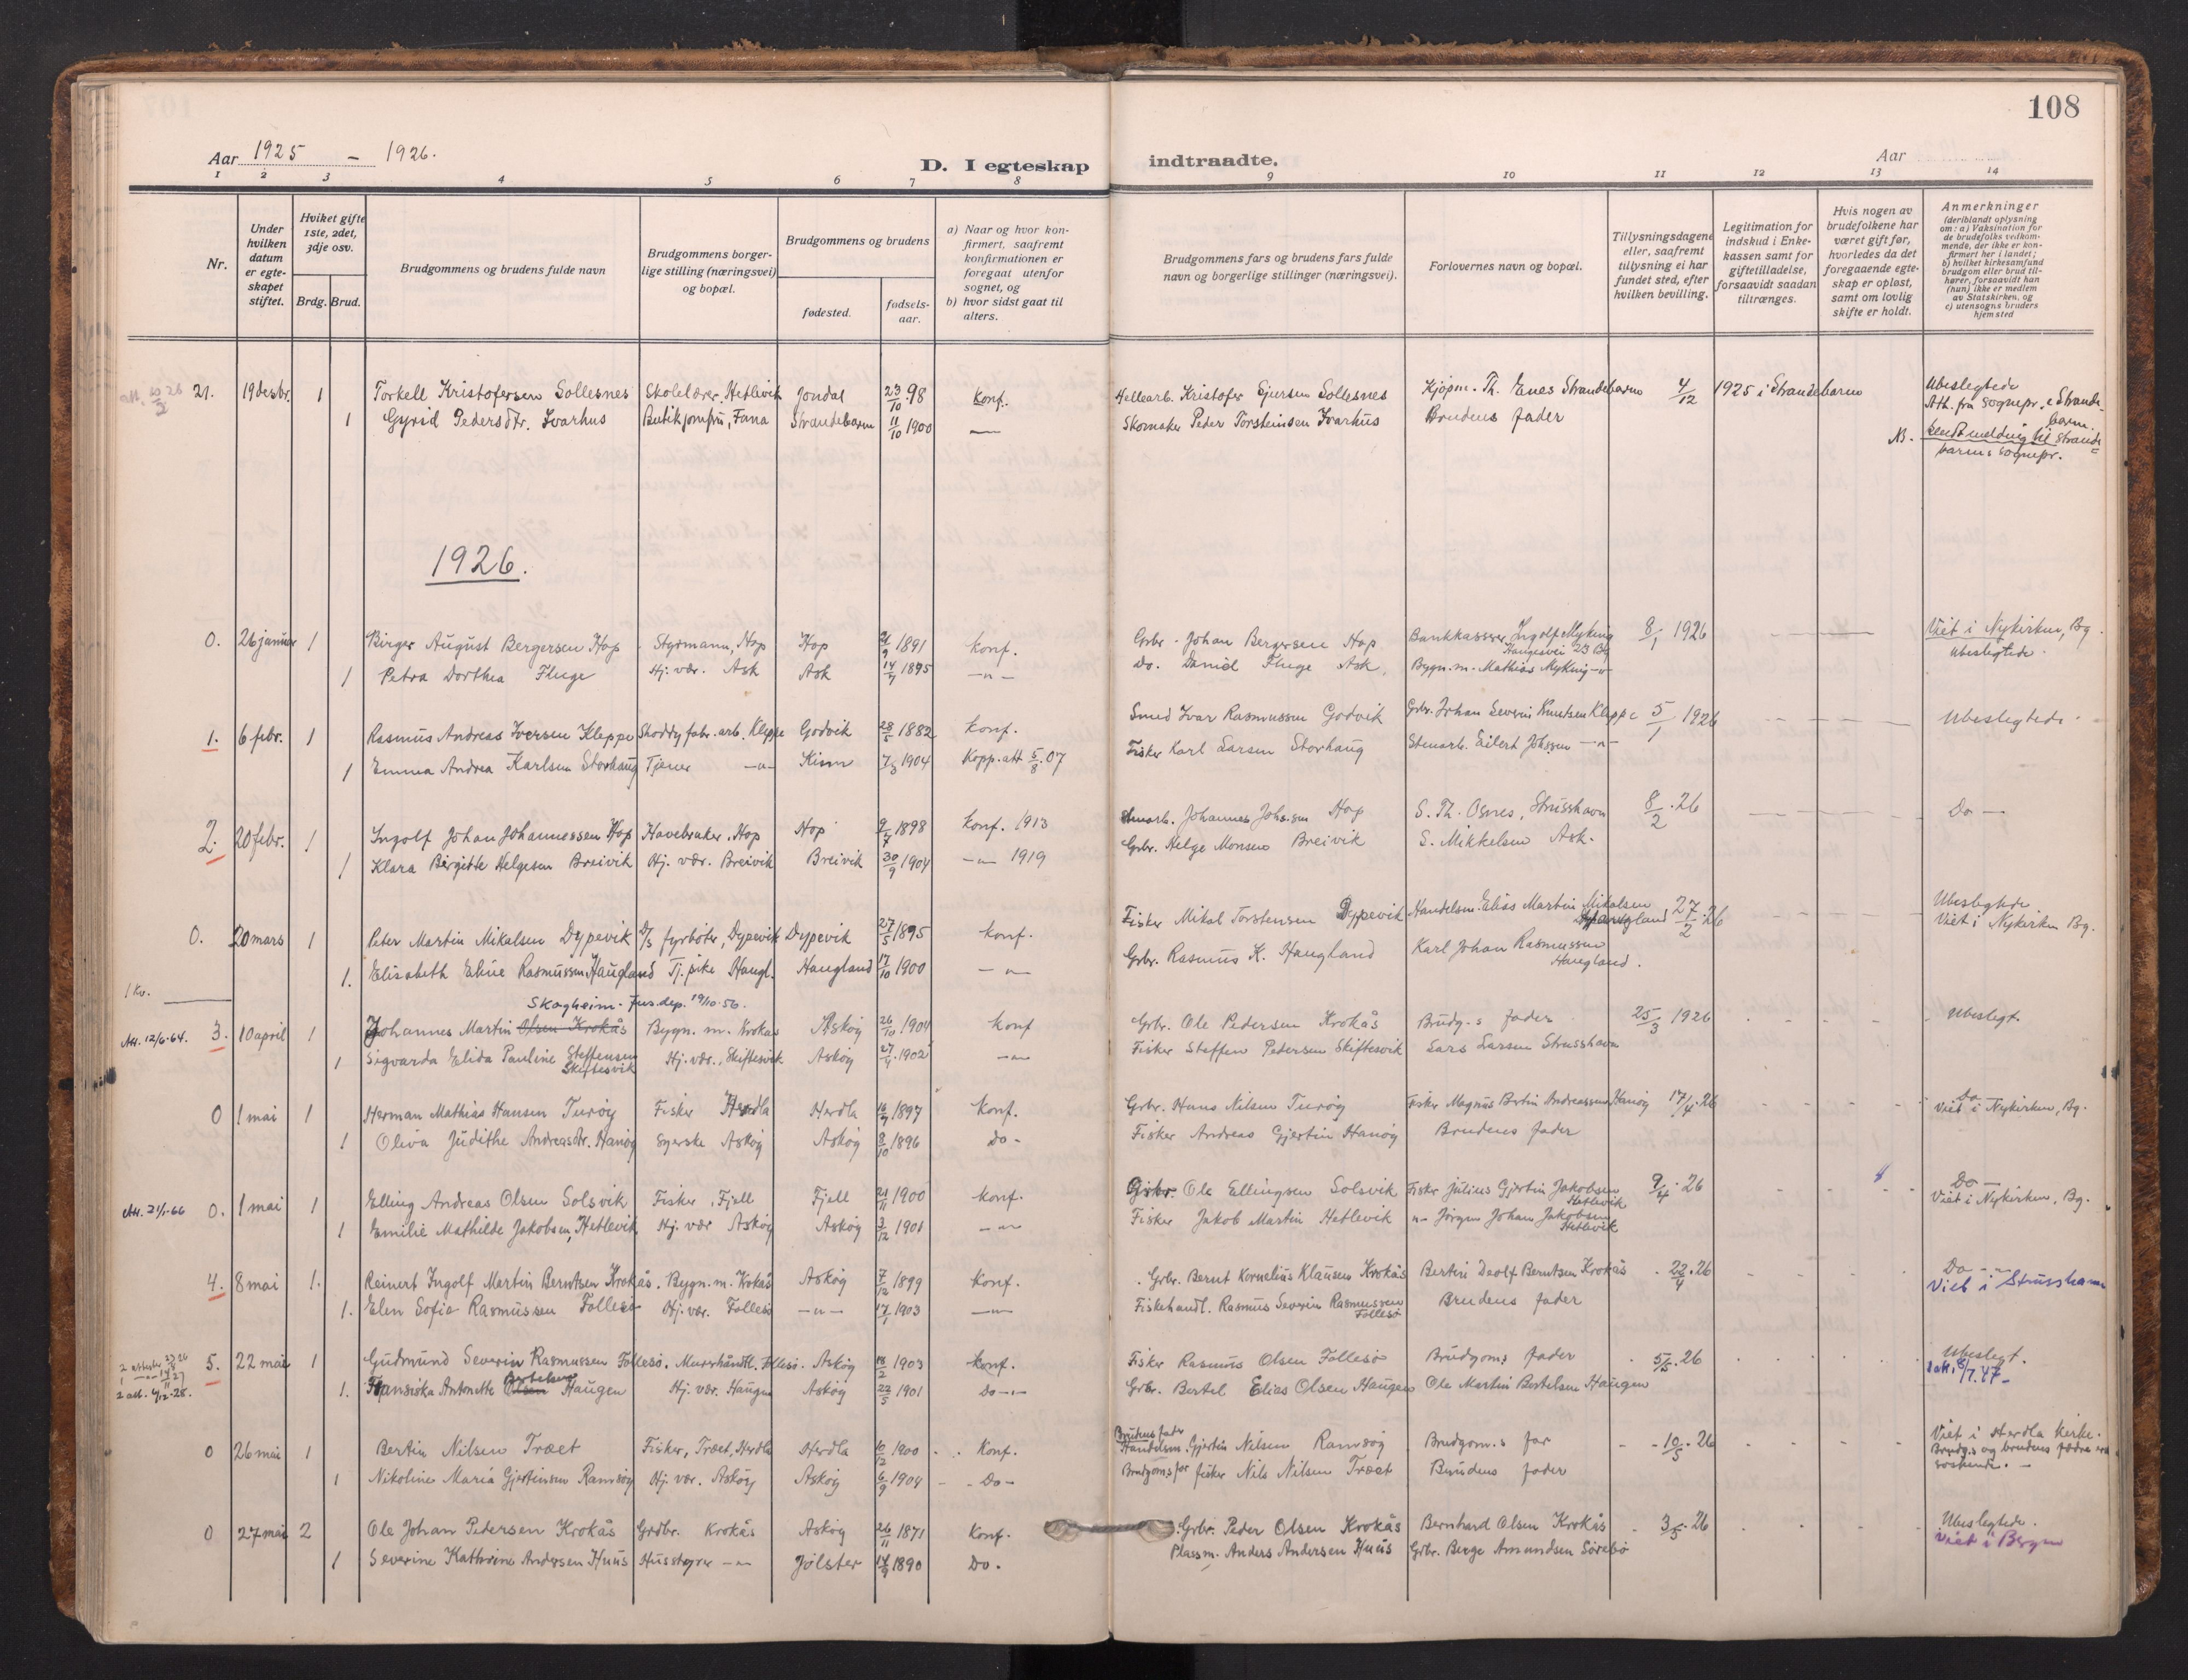 108
Aar 1925 – 1926.
D. I egteskap indtraadte.
Aar
1 2 3 4 5 6 7 8 9 10 11 12 13 14
Nr.
Under hvilken datum er egteskapet stiftet.
Hviket gifte 1ste, 2det, 3dje osv.
Brdg. Brud.
Brudgommens og brudens fulde navn
Brudgommens borgerlige stilling (næringsvei) og bopæl.
Brudgommens og brudens
fødested.
fødselsaar.
a) Naar og hvor konfirmert, saafremt konfirmationen er foregaat utenfor sognet, og
b) hvor sidst gaat til alters.
Brudgommens fars og brudens fars fulde navn og borgerlige stillinger (næringsvei).
Forlovernes navn og bopæl.
Tillysningsdagene eller, saafremt tillysning ei har fundet sted, efter hvilken bevilling.
Legitimation for indskud i Enkekassen samt for giftetilladelse, forsaavidt saadan tiltrænges.
Hvis nogen av brudefolkene har været gift før, hvorledes da det foregaaende egteskap er opløst, samt om lovlig skifte er holdt.
Anmerkninger (deriblandt oplysning om: a) Vaksination for de brudefolks vedkommende, der ikke er konfirmert her i landet; b) hvilket kirkesamfund brudgom eller brud tilhører, forsaavidt han (hun) ikke er medlem av Statskirken, og c) utensogns bruders hjemsted
21. 19 desbr. 1 Torkell Kristofersen Sollesnes Skolelærer, Hetlevik Jondal 23/10 98 Konf. Kristofer Ejersen Sollesnes Kjøpm. Th. Enes Strandebarm 4/12 1925 i Strandebarm Ubeslegtede
1 Gyrid Pedersdtr. Ivarhus Butikjomfru, Fana Strandebarm 11/10 1900 — Skomaker Peder Torsteinsen Ivarhus Brudens fader Att. fra sognepr. i Strandebarm.
NB. Sendt melding til Strandebarms sognepr.
1926.
0. 26 januar 1 Birger August Bergersen Hop Styrmann, Hop Hop 1891 konf. Grbr. Johan Bergersen Hop Bankkasserer Ingolf Myking Haugesvei 23 Bg 8/1 1926 Viet i Nykirken, Bg.
1 Petra Dorthea Fluge Hj. vær. Ask Ask 1895 —"— Do. Daniel Fluge Ask. Bygn.m. Mathias Myking —"— Ubeslegtede.
1. 6 febr. 1 Rasmus Andreas Iversen Kleppe Shoddyfabr.arb. Kleppe Godvik 28/5 1882 konf. Smed Ivar Rasmussen Godvik Grbr. Johan Severin Knutsen Kleppe 5/1 1926 Ubeslegtede.
1 Emma Andrea Karlsen Storhaug Tjener —"— Kinn 7/3 1904 Kopp.att 5/8.07 Fisker Karl Larsen Storhaug Stenarb. Eilert Johssen —"—
2. 20 febr. 1 Ingolf Johan Johannessen Hop Havebruker, Hop Hop 9/7 1898 Konf. 1913 Johannes Johssen Hop S. Th. Osnes, Strusshavn 8/2.26 Do —
1 Klara Birgitte Helgesen Breivik Hj. vær. Breivik Breivik 30/9 1904 —"— 1919 Grbr. Helge Monsen Breivik S. Mikkelsen Ask.
0. 20 mars 1 Peter Martin Mikalsen Dypevik D/s fyrbøter, Dypevik Dypevik 27/5 1895 konf. Fisker Mikal Torstensen Dypevik Handelsm. Elias Martin Mikalsen Haugland 27/2.26 Ubeslegtede
Viet i Nykirken Bg.
1. Elisabeth Eline Rasmussen Haugland Tj. pike Haugl. Haugland 17/10 1900 —"— Grbr. Rasmus K. Haugland Karl Johan Rasmussen Haugland.
1 Kv.
Skogheim. Jus.dep. 19/10.56.
Att. 12/6.64. 3. 10 april 1 Johannes Martin Olsen Krokås Bygn. m. Krokås Askøy 26/10 1901 konf Grbr. Ole Pedersen Krokås Brudg.s fader 25/3 1926 Ubeslegt.
1 Sigvarda Elida Pauline Steffensen Skiftesvik Hj. vær., Skiftesvik Askøy 1902 —"— Fisker Steffen Pedersen Skiftesvik Lars Larsen Strusshavn
0 1 mai 1 Herman Mathias Hansen Turøy Fisker Herdla Herdla 1897 konf. Grbr. Hans Nilsen Turøy Fisker Magnus Bertin Andreassen Hanøy 17/4.26 Do — Viet i Nykirken, Bg.
1 Oliva Judithe Andreasdtr. Hanøy Syerske Askøy Askøy 8/10 1896 Do — Fisker Andreas Gjertin Hanøy Brudens fader
Att. 21/1-66 0. 1 mai 1 Elling Andreas Olsen Solsvik Fisker, Fjell Fjell 21/11 1900 konf. Grbr. Ole Ellingsen Solsvik Fisker Julius Gjertin Jakobsen Hetlevik 9/4.26 Do —
Viet i Nykirken, Bg.
1 Emilie Mathilde Jakobsen, Hetlevik Hj. vær Askøy Askøy 3/12 1901 —"— Fisker Jakob Martin Hetlevik —"— Jørgen Johan Jakobsen Hetlevik
4. 8 mai 1. Reinert Ingolf Martin Berntsen Krokås. Bygn.m. Krokås Askøy 7/12 1899 konf. Grbr. Bernt Kornelius Klausen Krokås Bertin Deolf Berntsen Krokås 22/4.26 Do —
Viet i Strusshavn
1. Elen Sofie Rasmussen Follesø Hj. vær. Follesø —"— 17/1 1903 —"— Fiskehandl. Rasmus Severin Rasmussen Follesø Brudens fader
2 att. 4/12-28. 5. 22 mai 1 Gudmund Severin Rasmussen Follesø. Murerhåndtl. Follesø. Askøy 18/2 1903 konf. Fisker Rasmus Olsen Follesø Brudgoms fader 5/5.26 Ubeslegt.
1. Fransiska Antonette Olsen Bertelsen Haugen Hj. vær. Haugen Askøy 22/5 1901 Do —"— Grbr. Bertel Elias Olsen Haugen Ole Martin Bertelsen Haugen
0 26 mai 1 Bertin Nilsen Træet Fisker, Træet, Herdla Herdla 10/12 1900 Konf. Brudens fader Handelsm. Gjertin Nilsen Ramsøy Brudgom.s far 10/5.26 Viet i Herdla kirke.
Brudg.s og brudens fædre søskende. —
1 Nikoline Maria Gjertinsen Ramsøy Hj. vær. Askøy Askøy 6/9 1904 Do — Brudgoms far fisker Nils Nilsen Træet Brudens fader
0 27 mai 2 Ole Johan Pedersen Krokås Grdbr. Krokås Askøy 26/11 1871 Konf. Grbr. Peder Olsen Krokås Bernhard Olsen Krokås 3/5.26 Ubeslegtede.
1 Severine Kathrine Andersen Huus Husstyrer —"— Jølster 1890 Do. Plassm. Anders Andersen Huus Grbr. Berge Amundsen Sørebø Viet i Bergen